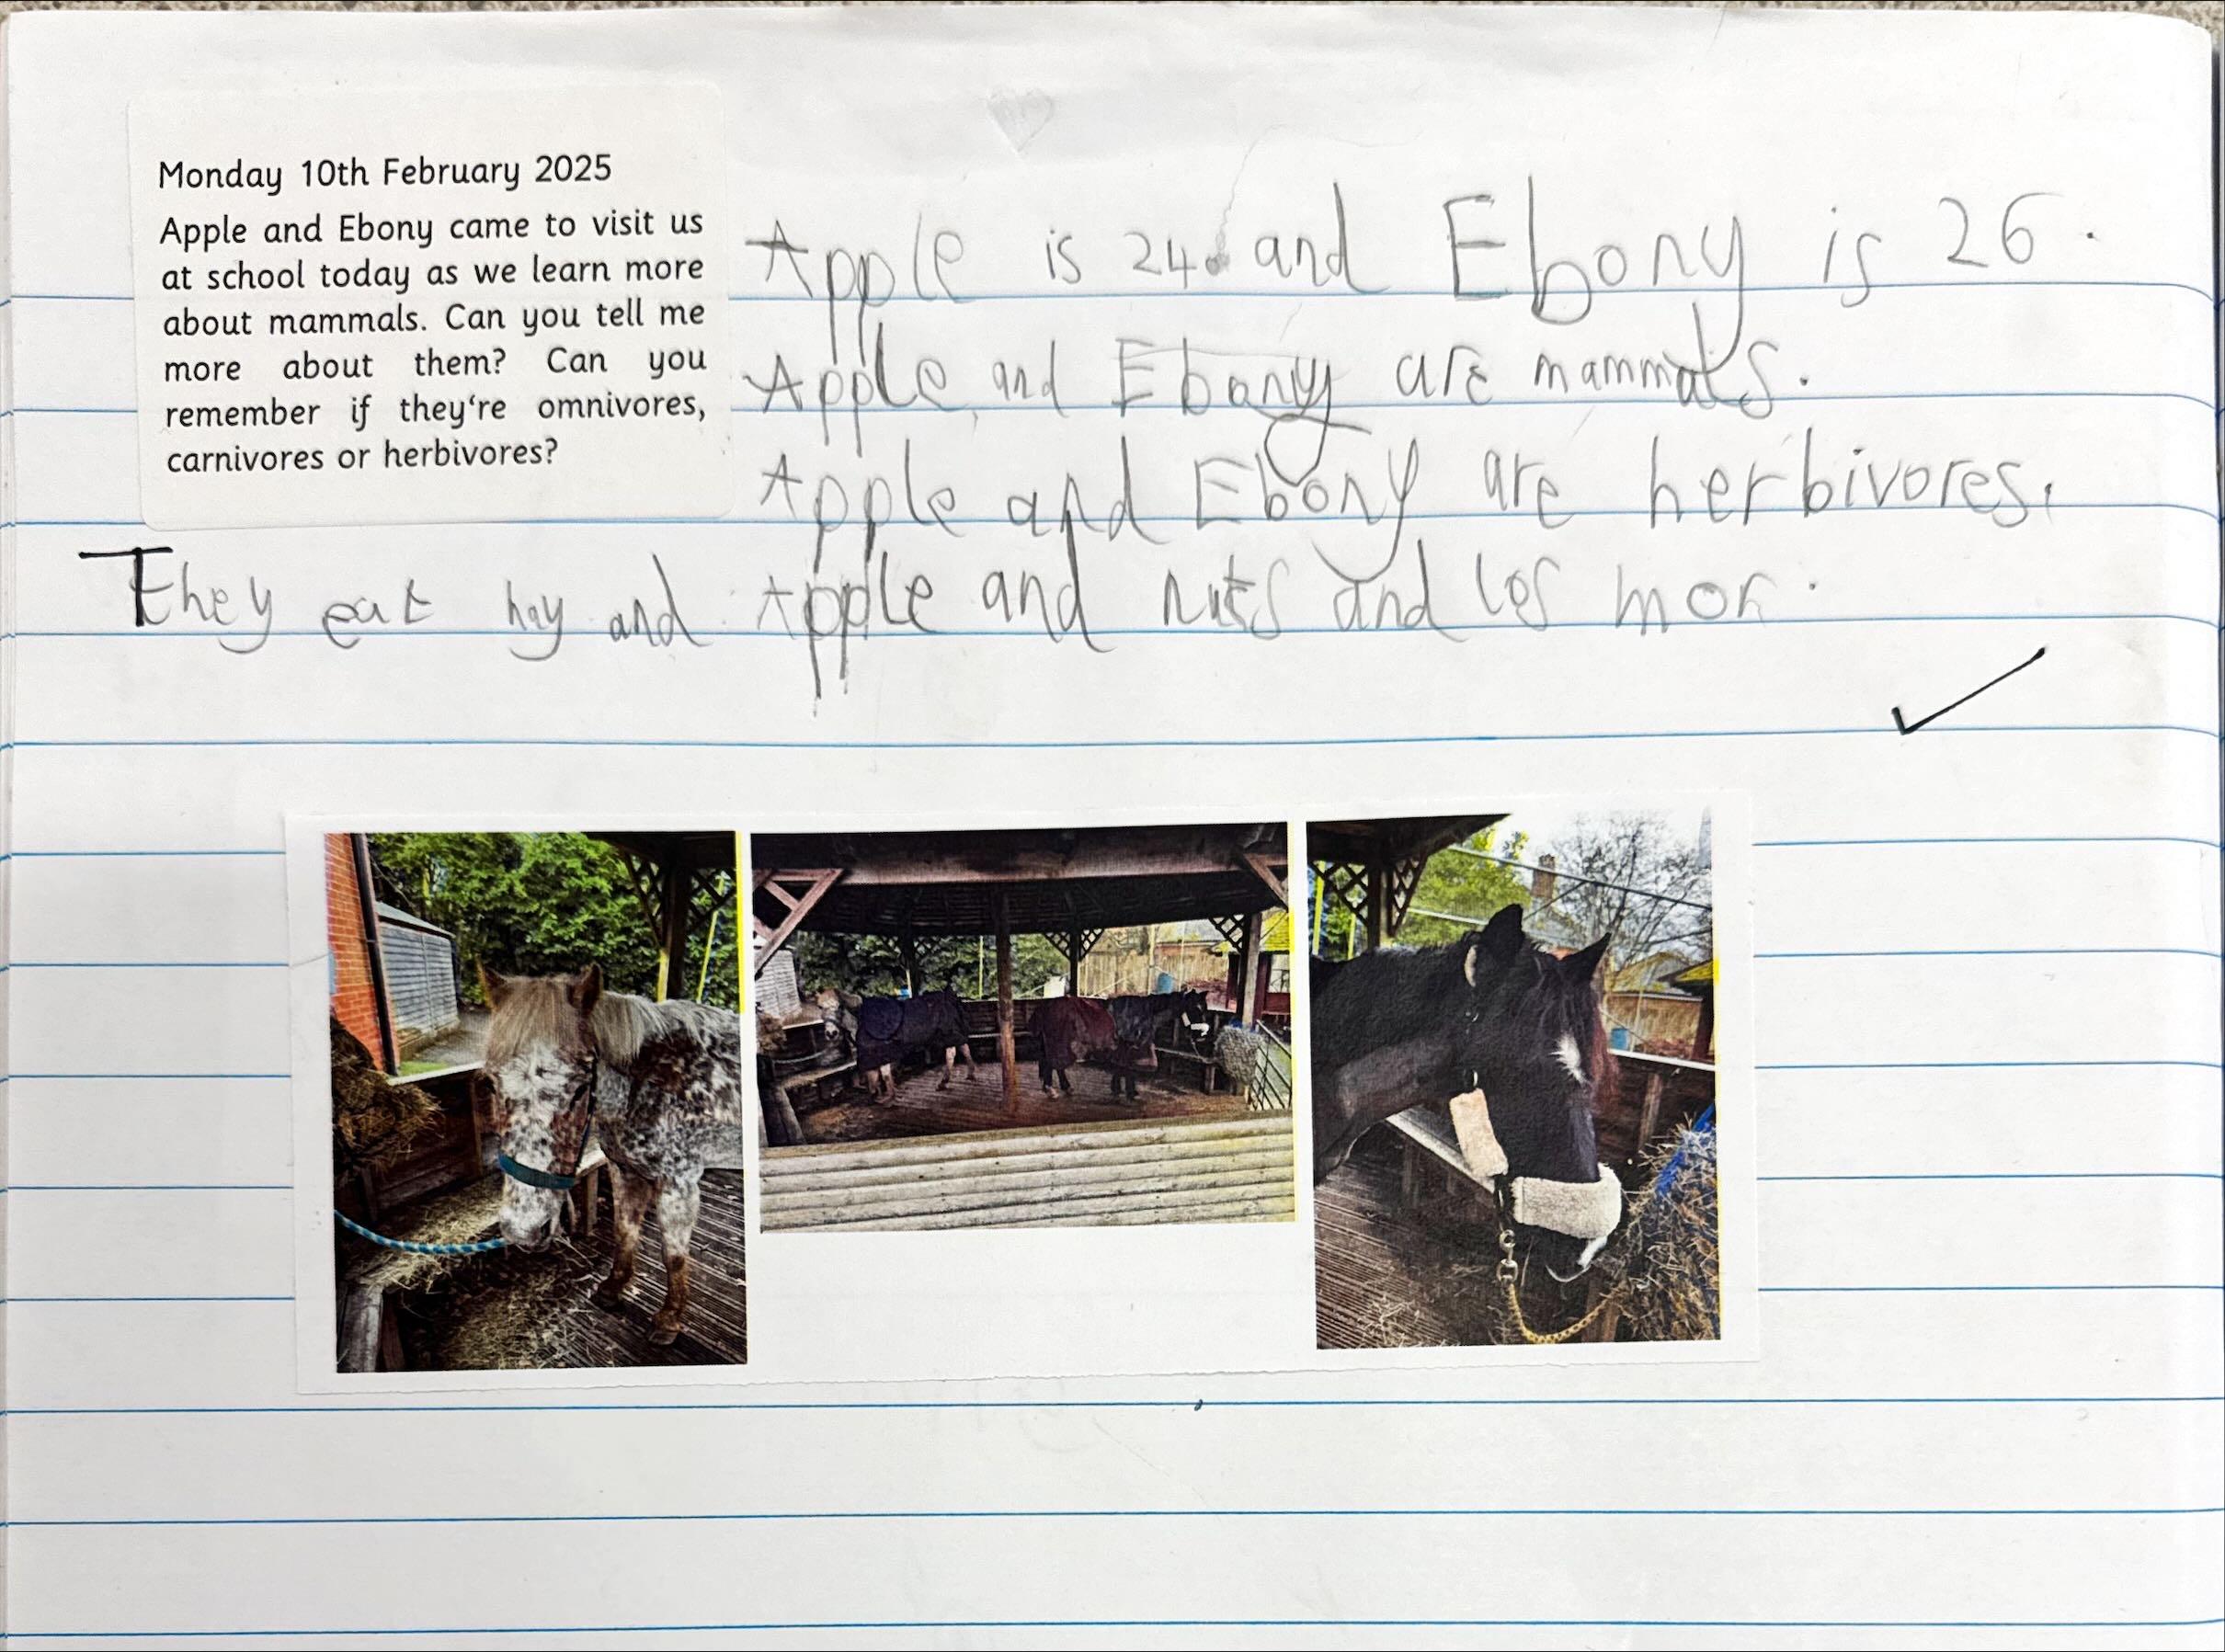 Monday 10th February 2025
Apple and Ebony came to visit us
at school today as we learn more
about mammals. Can you tell me
more about them? Can you
remember if they're omnivores,
carnivores or herbivores?
Apple is 24 and Ebony is 26.
Apple and Ebony are mammals.
Apple and Ebony are herbivores.
They eat hay and Apple and nuts and los mor.